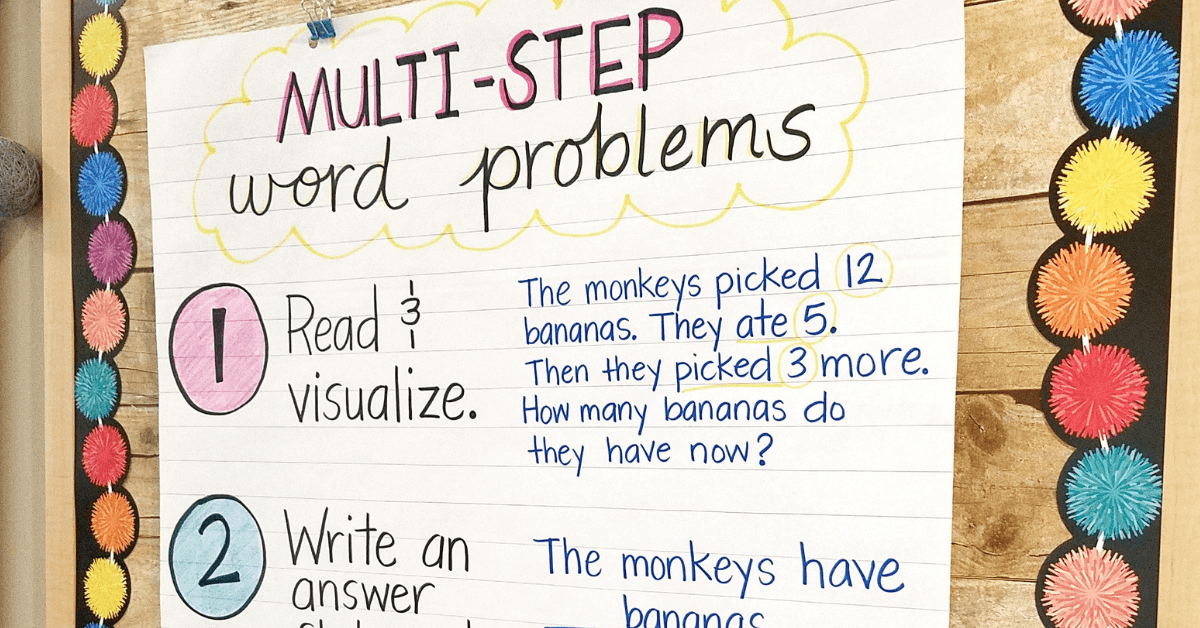 MULTI-STEP
word problems
1
Read &
visualize.
The monkeys picked 12
bananas. They ate 5.
Then they picked 3 more.
How many bananas do
they have now?
2
Write an
answer
The monkeys have
bananas